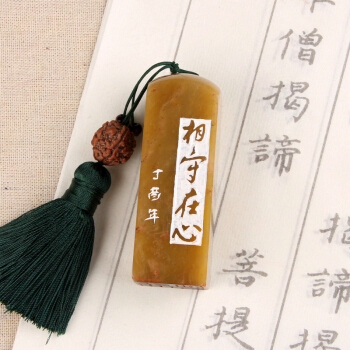 相守在心
丁酉年
僧揭諦
菩提